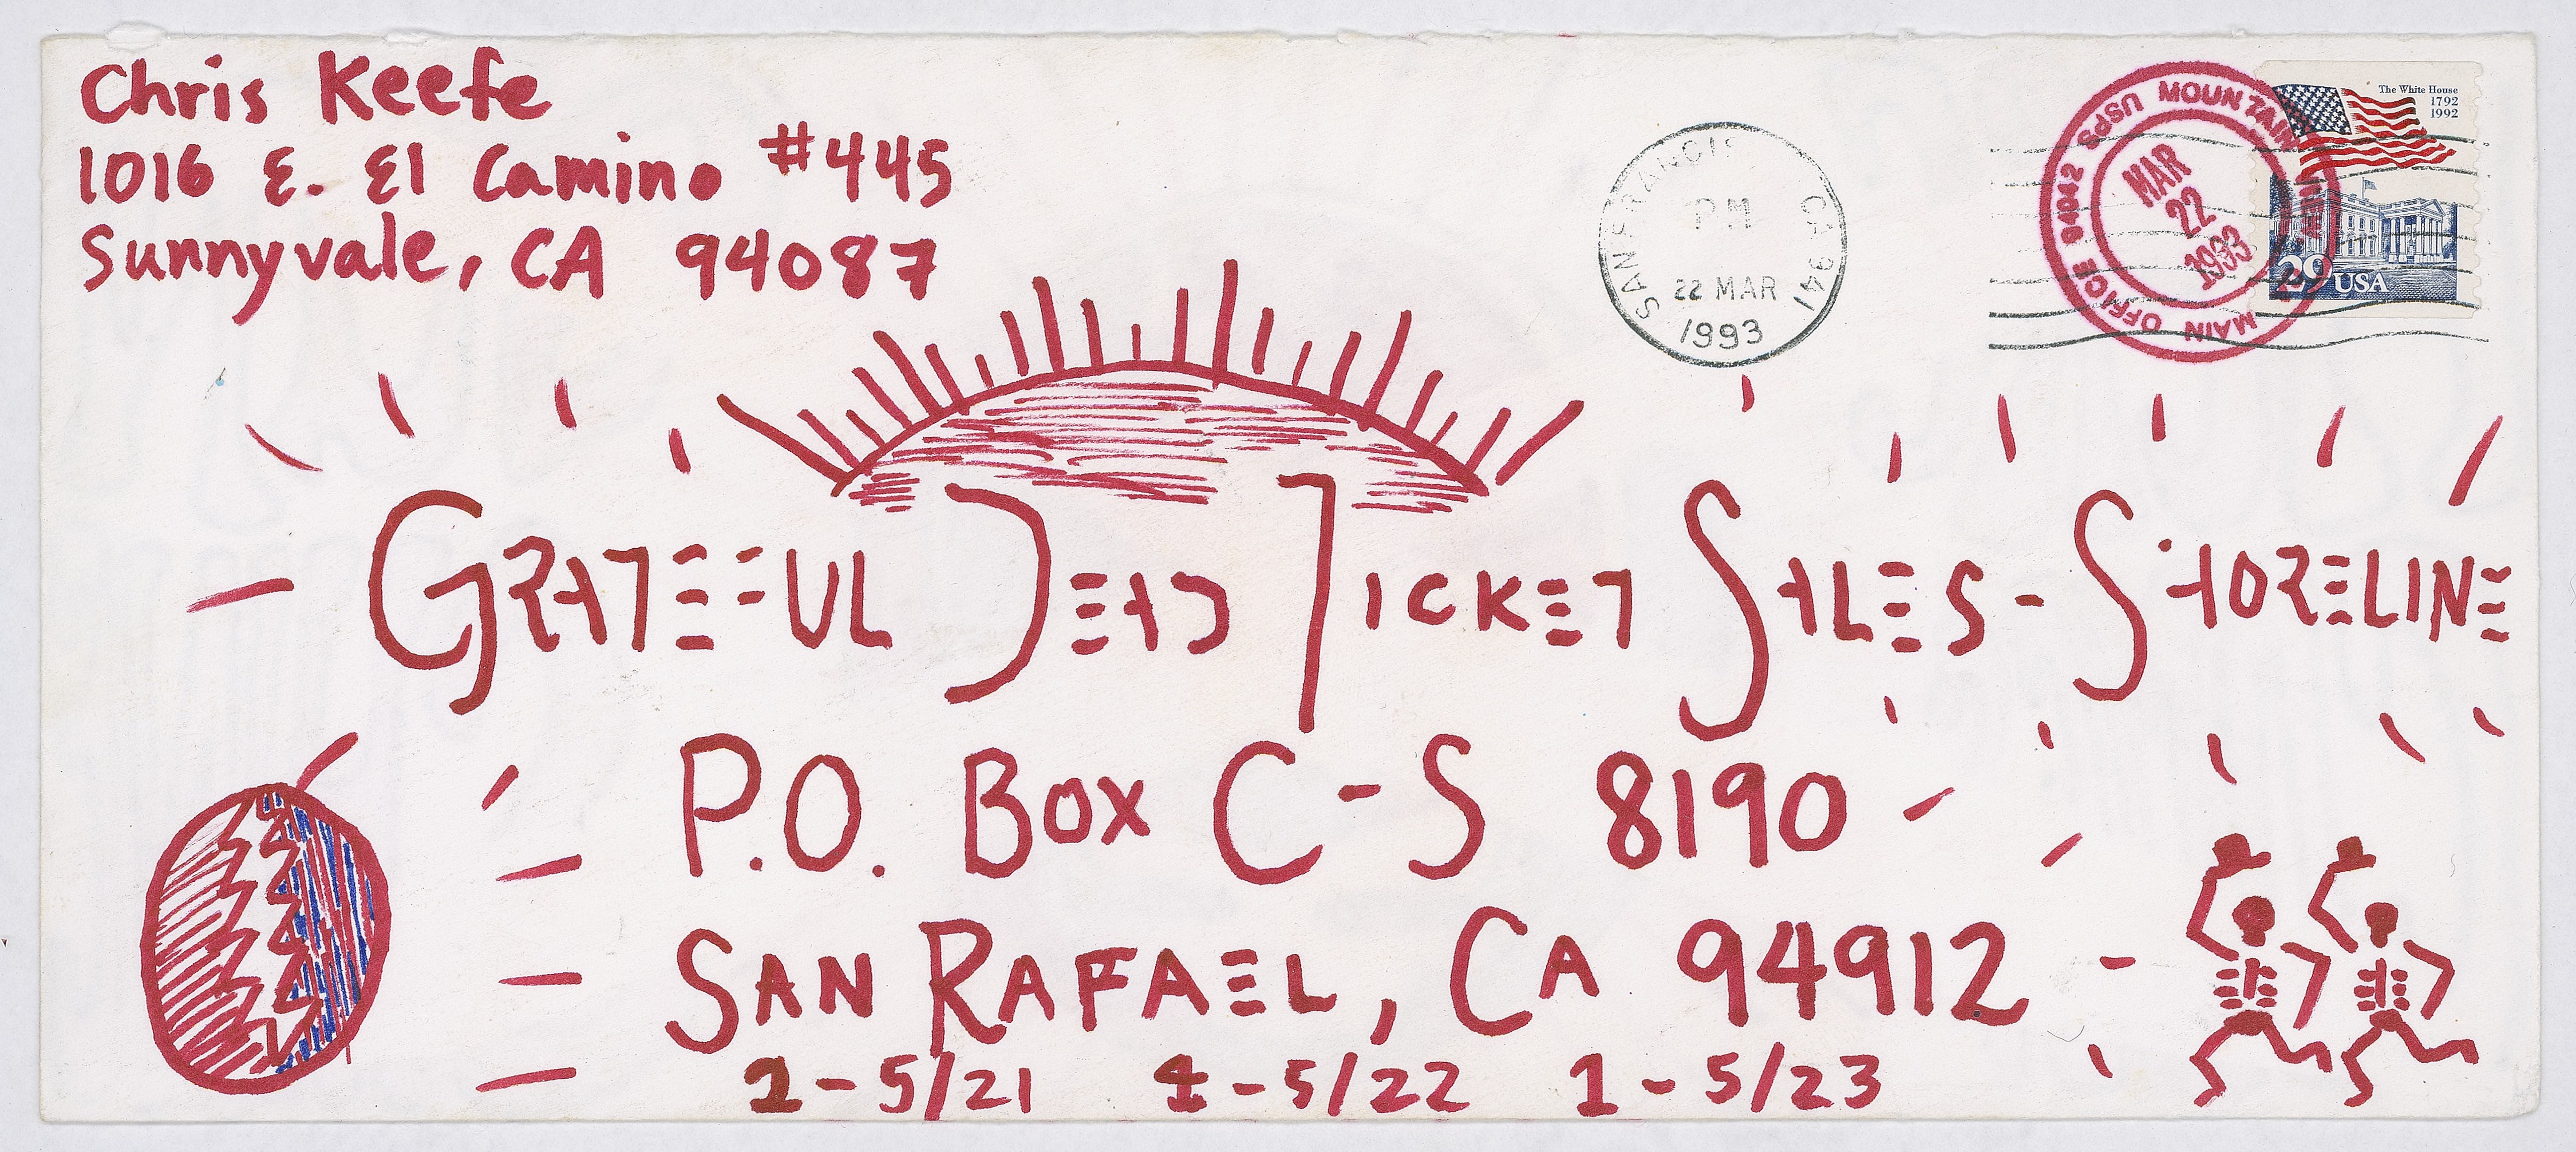 Chris Keefe
1016 E. El Camino #445
Sunnyvale, CA 94087
SAN FRANCIS CA 941
PM
22 MAR
1993
USPS MOUNTAIN VIEW
MAIN OFFICE 94042
MAR
22
1993
The White House
1792
1992
29 USA
GRATEFUL DEAD TICKET SALES - SHORELINE
P.O. BOX C-S 8190
SAN RAFAEL, CA 94912
5/21 5/22 1-5/23